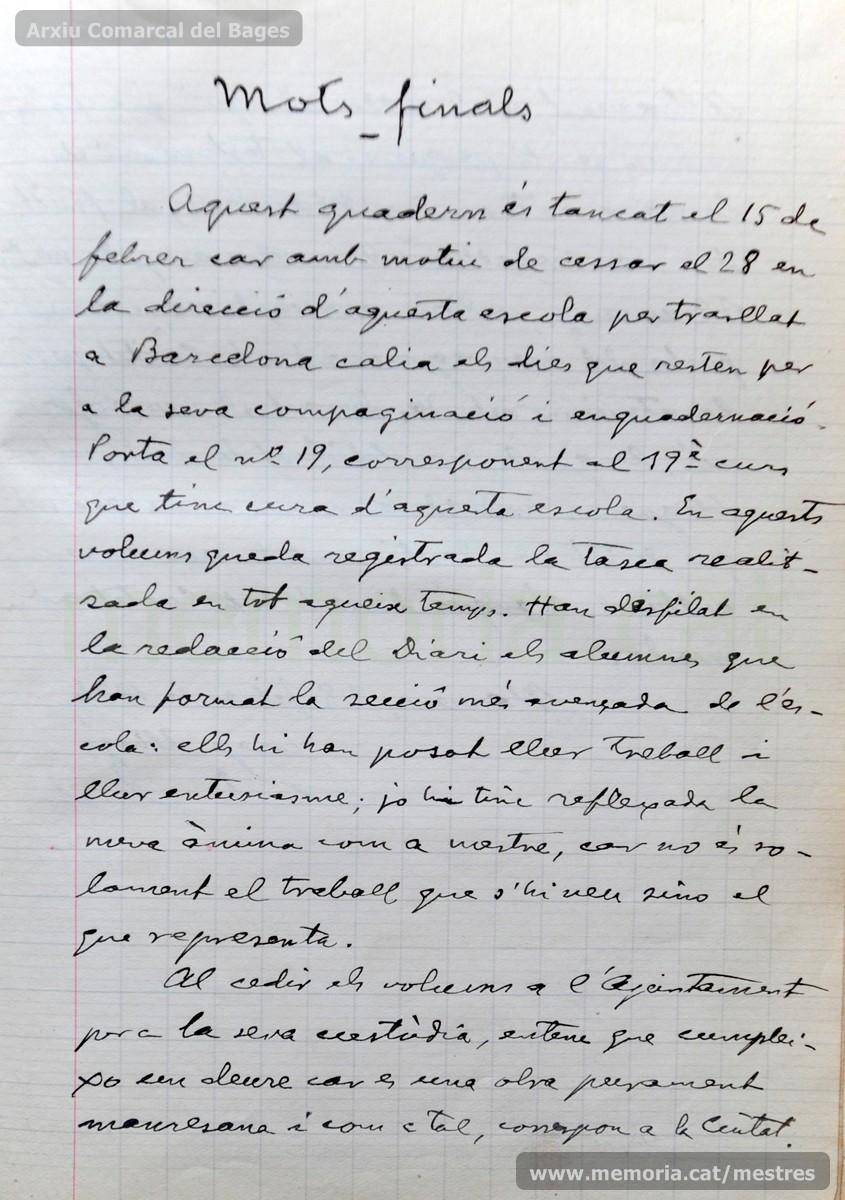 Arxiu Comarcal del Bages
Mots finals
Aquest quadern és tancat el 15 de
febrer car amb motiu de cessar el 28 en
la direcció d'aquesta escola per trasllat
a Barcelona calia els dies que resten per
a la seva compaginació i enquadernació.
Porta el nº 19, corresponent al 19è curs
que tinc cura d'aquesta escola. En aquests
volums queda registrada la tasca realit-
zada en tot aqueix temps. Han desfilat en
la redacció del Diari els alumnes que
han format la secció més avençada de l'es-
cola: ells hi han posat llur treball i
llur entusiasme; jo hi tinc reflexada la
meva ànima com a mestre, car no és so-
lament el treball que s'hi veu sino el
que representa.
Al cedir els volums a l'Ajuntament
per a la seva custòdia, entenc que complei-
xo un deure car es una obra purament
manresana i com a tal, correspon a la Ciutat.
www.memoria.cat/mestres